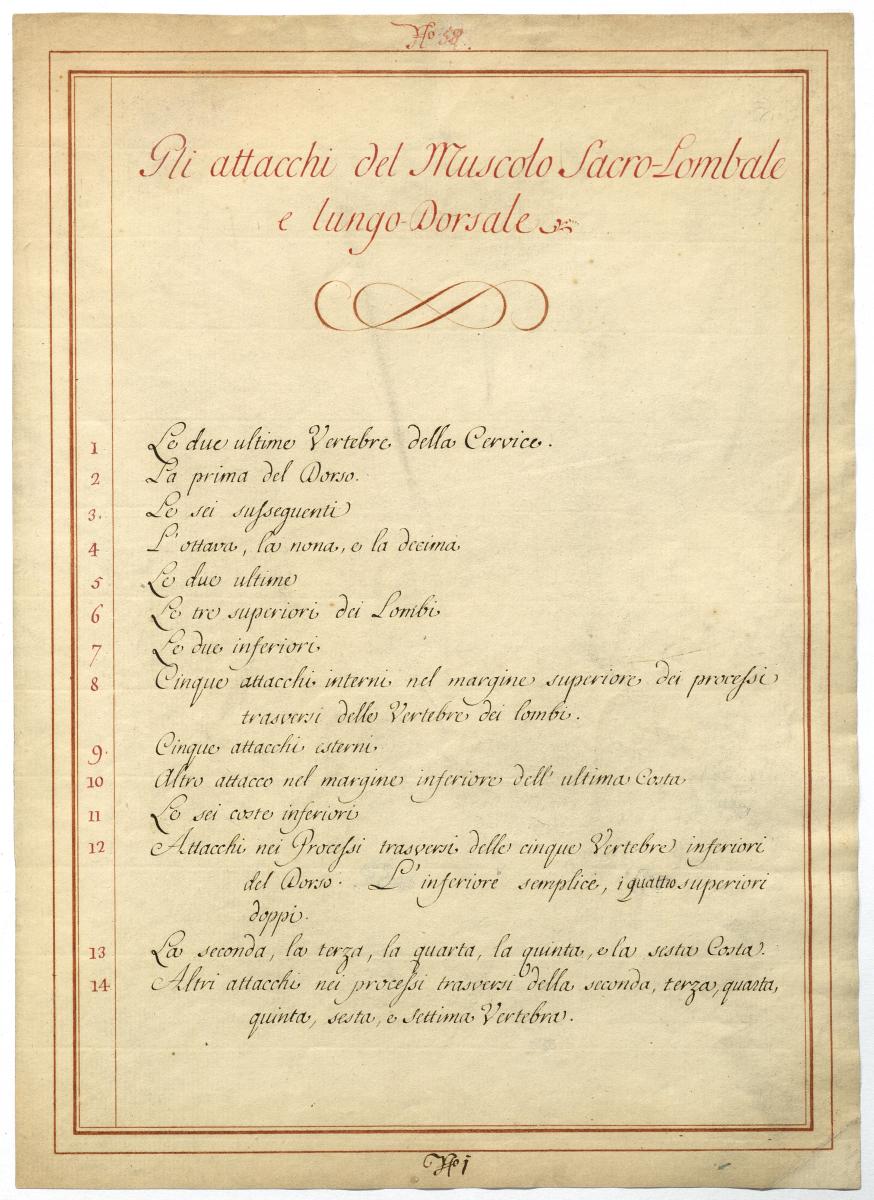 No 58.
Gli attacchi del Muscolo Sacro-Lombale
e lungo-Dorsale
1 Le due ultime Vertebre della Cervice.
2 La prima del Dorso.
3. Le sei susseguenti
4 L'ottava, la nona, e la decima
5 Le due ultime
6 Le tre superiori dei Lombi
7 Le due inferiori
8 Cinque attacchi interni nel margine superiore dei processi
trasversi delle Vertebre dei lombi.
9. Cinque attacchi esterni
10 Altro attacco nel margine inferiore dell'ultima Costa
11 Le sei coste inferiori
12 Attacchi nei Processi trasversi delle cinque Vertebre inferiori
del Dorso. L'inferiore semplice, i quattro superiori
doppi.
13 La seconda, la terza, la quarta, la quinta, e la sesta Costa.
14 Altri attacchi nei processi trasversi della seconda, terza, quarta,
quinta, sesta, e settima Vertebra.
No 1